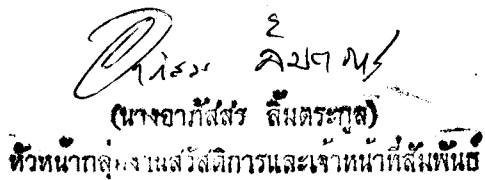 (นางอาภัสสร ลิ้มตระกูล)
หัวหน้ากลุ่มงานสวัสดิการและเจ้าหน้าที่สัมพันธ์